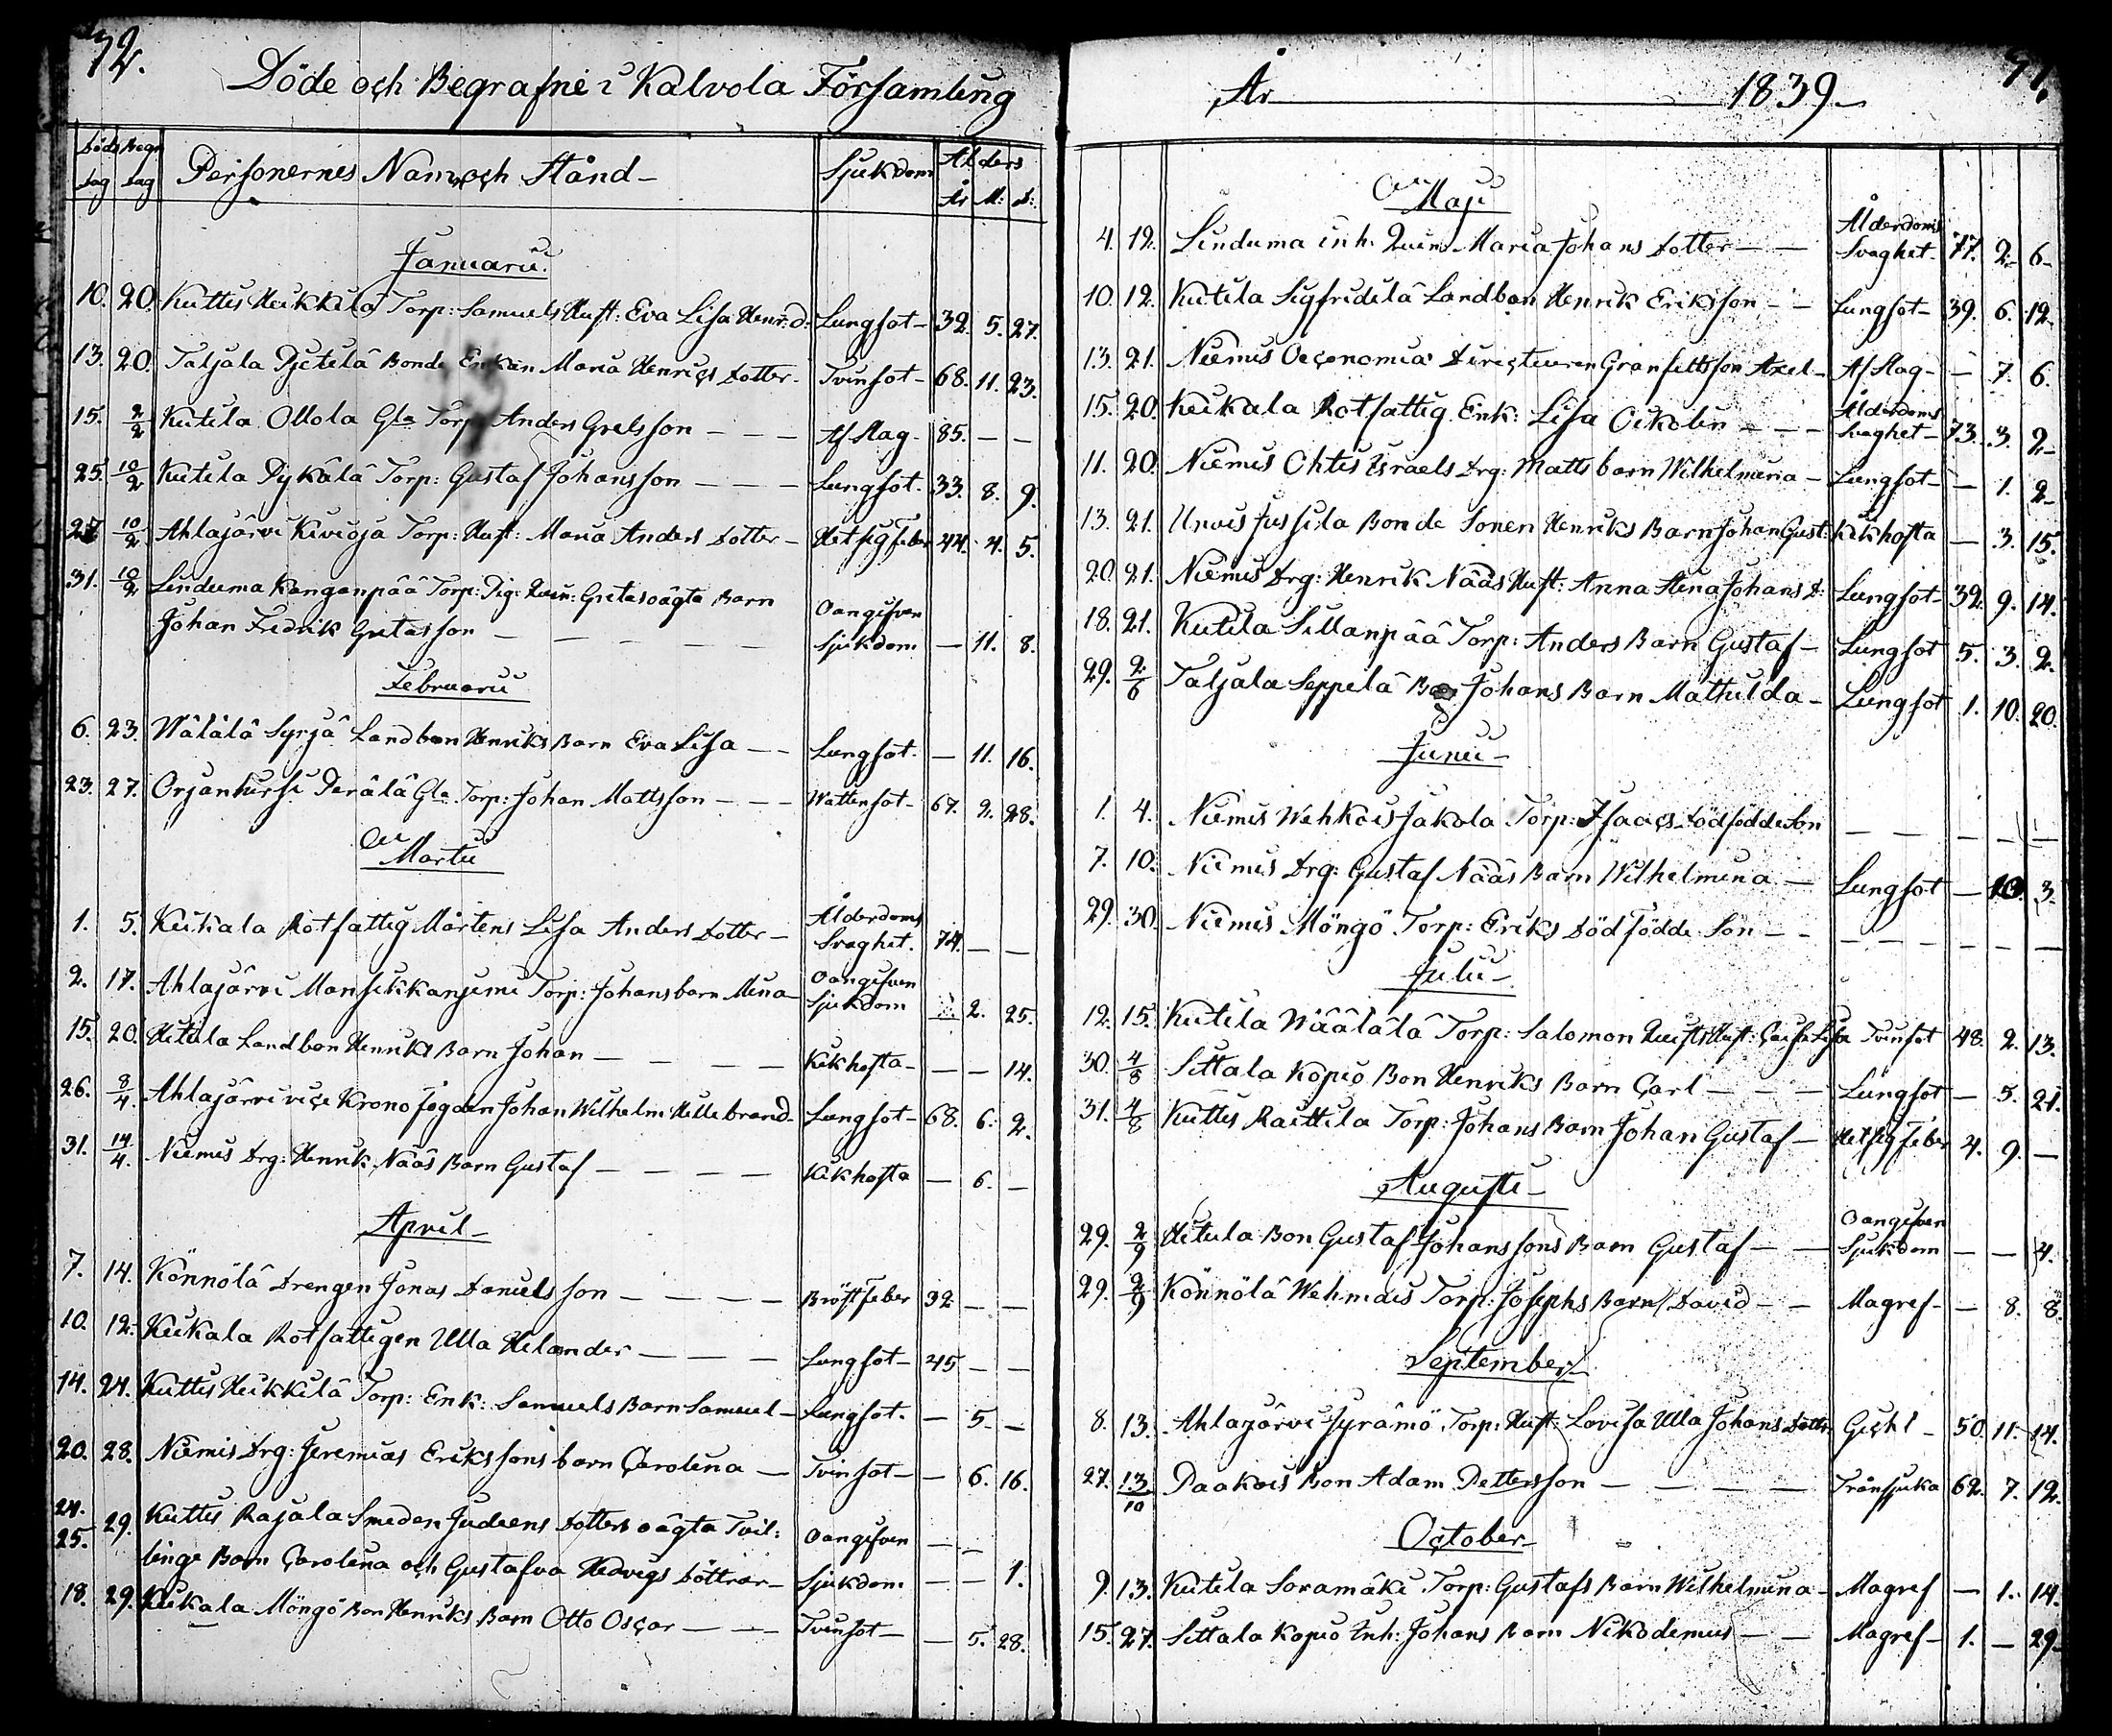 72.
Döde och Begrafne i Kalvola Församling
Döds Begr
dag dag Personernes Namn och Stånd - Sjukdom Ålders
År M: D:
Januarii
10. 20. Kuttis Heikkilä Torp: Samuels Hust: Eva Lisa Henr: d. Lungsot - 32. 5. 27.
13. 20. Taljala Pjetilä Bonde Enkan Maria Henrics dotter - Tvinsot - 68. 11. 23.
15. 2/2 Kutila Ollola Gla Torp: Anders Grelsson - - - Af Slag - 85. - -
25. 10/2 Kutila Pykälä Torp: Gustaf Johansson - - - Lungsot - 33. 8. 9.
27 10/2 Ahlajärvi Kivioja Torp: Hust: Maria Anders dotter - Hetsig feber 44. 4. 5.
31. 10/2 Linduma Kanganpää Torp: Pig: Qvin: Gretas oägta Barn Oangifven
Johan Fredrik Gretasson - - - - Sjukdom - 11. 8.
Februarii
6. 23. Wälälä Syrjä Landbon Henriks Barn Eva Lisa - - Lungsot - - 11. 16.
23. 27. Orjanhirsi Perälä Gla Torp: Johan Mattsson - - - Wattensot - 67. 2. 28.
Martii
1. 5. Keikala Rotfattig Mårtens Lisa Anders dotter - Ålderdoms Svaghet. 74. - -
2. 17. Ahlajärvi Mansikkanjemi Torp: Johans barn Mina - Oangifven Sjukdom - 2. 25.
15. 20. Hitula Landbon Henriks Barn Johan - - - - Kikhosta - - - 14.
26. 8/4. Ahlajärvi vice Krono fogden Johan Wilhelm Hillebrand - Lungsot - 68. 6. 2.
31. 14/4. Niemis Drg: Henrik Nääs Barn Gustaf - - - - Kikhosta - 6. -
April -
7. 14. Könnölä Drengen Jonas Danielsson - - - - Bröstfeber 32 - -
10. 12. Keikala Rotfattigen Ulla Helander - - - Lungsot - 45 - -
14. 24. Kuttis Heikkilä Torp: Enk: Samuels Barn Samuel - Lungsot. - 5 - -
20. 28. Niemis Drg: Jeremias Erikssons barn Carolina - Tvinsot - - 6. 16.
24.
25. 29. Kuttis Rajala Smeden Judeens dotters oägta Tvil: Oangifven - -
linge Barn Carolina och Gustafva Hedvigs döttrar - Sjukdom - - 1.
18. 29. Keikala Möngö Bon Henriks Barn Otto Oscar - - - Tvinsot - - 5. 28.
År - 1839 -
Maji
4. 12. Linduma inh. Qvin: Maria Johans dotter - - Ålderdoms Svaghet - 77. 2. 6 -
10. 12. Kutila Sigfridilä Landbon Henrik Eriksson - - Lungsot - 39. 6. 12.
13. 21. Niemis Oeconomia Directeuren Granfelts son Axel - Af Slag - - 7. 6.
15. 20. Keikala Rotfattig Enk: Lisa Cikolin - - - Ålderdoms Svaghet - 73. 3. 2 -
11. 20. Niemis Ohtis Israels Drg: Matts barn Wilhelmina - Lungsot - - 1. 2 -
13. 21. Unois Jussila Bonde Sonen Henriks Barn Johan Gust: Kikhosta - 3. 15.
20. 21. Niemis Drg: Henrik Nääs Hust: Anna Stena Johans D: Lungsot - 32. 9. 14.
18. 21. Kutila Sillanpää Torp: Anders Barn Gustaf - Lungsot 5. 3. 2.
29. 2/6 Taljala Seppelä Johans Barn Mathilda - Lungsot 1. 10. 20.
Junii -
1. 4. Niemis Wehkois Jakola Torp: Isaacs dödfödde Son - - - - -
7. 10. Niemis Drg: Gustaf Nääs Barn Wilhelmina - Lungsot - 10. 3.
29. 30. Niemis Möngö Torp: Eriks Dödfödde Son - - - - - - - -
Julii -
12. 15. Kutila Wäälälä Torp: Salomon Hust: Cajsa Lisa Tvinsot 48. 2. 13.
30. 4/8 Sittala Kopio Bon Henriks Barn Carl - - - Lungsot - 5. 21.
31. 4/8 Kuttis Raittila Torp: Johans Barn Johan Gustaf - Hetsig feber 4. 9. -
Augusti -
29. 2/9 Hitula Bon Gustaf Johanssons Barn Gustaf - - Oangifven Sjukdom - - 4.
29. 2/9 Könnölä Wehmais Torp: Josephs Barn David - - Magref - - 8. 8.
September -
8. 13. Ahlajärvi Syrämö Torp: Hust: Lovisa Ulla Johans dotter Gicht - 50. 11. 14.
27. 13/10 Paakois Bon Adam Pettersson - - - - Trånsjuka 62. 7. 12.
October -
9. 13. Kutila Soramäki Torp: Gustafs Barn Wilhelmina - Magref - 1. 14.
15. 27. Sittala Kopio Inh: Johans Barn Nikodemus - - Magref - 1. - 29 -